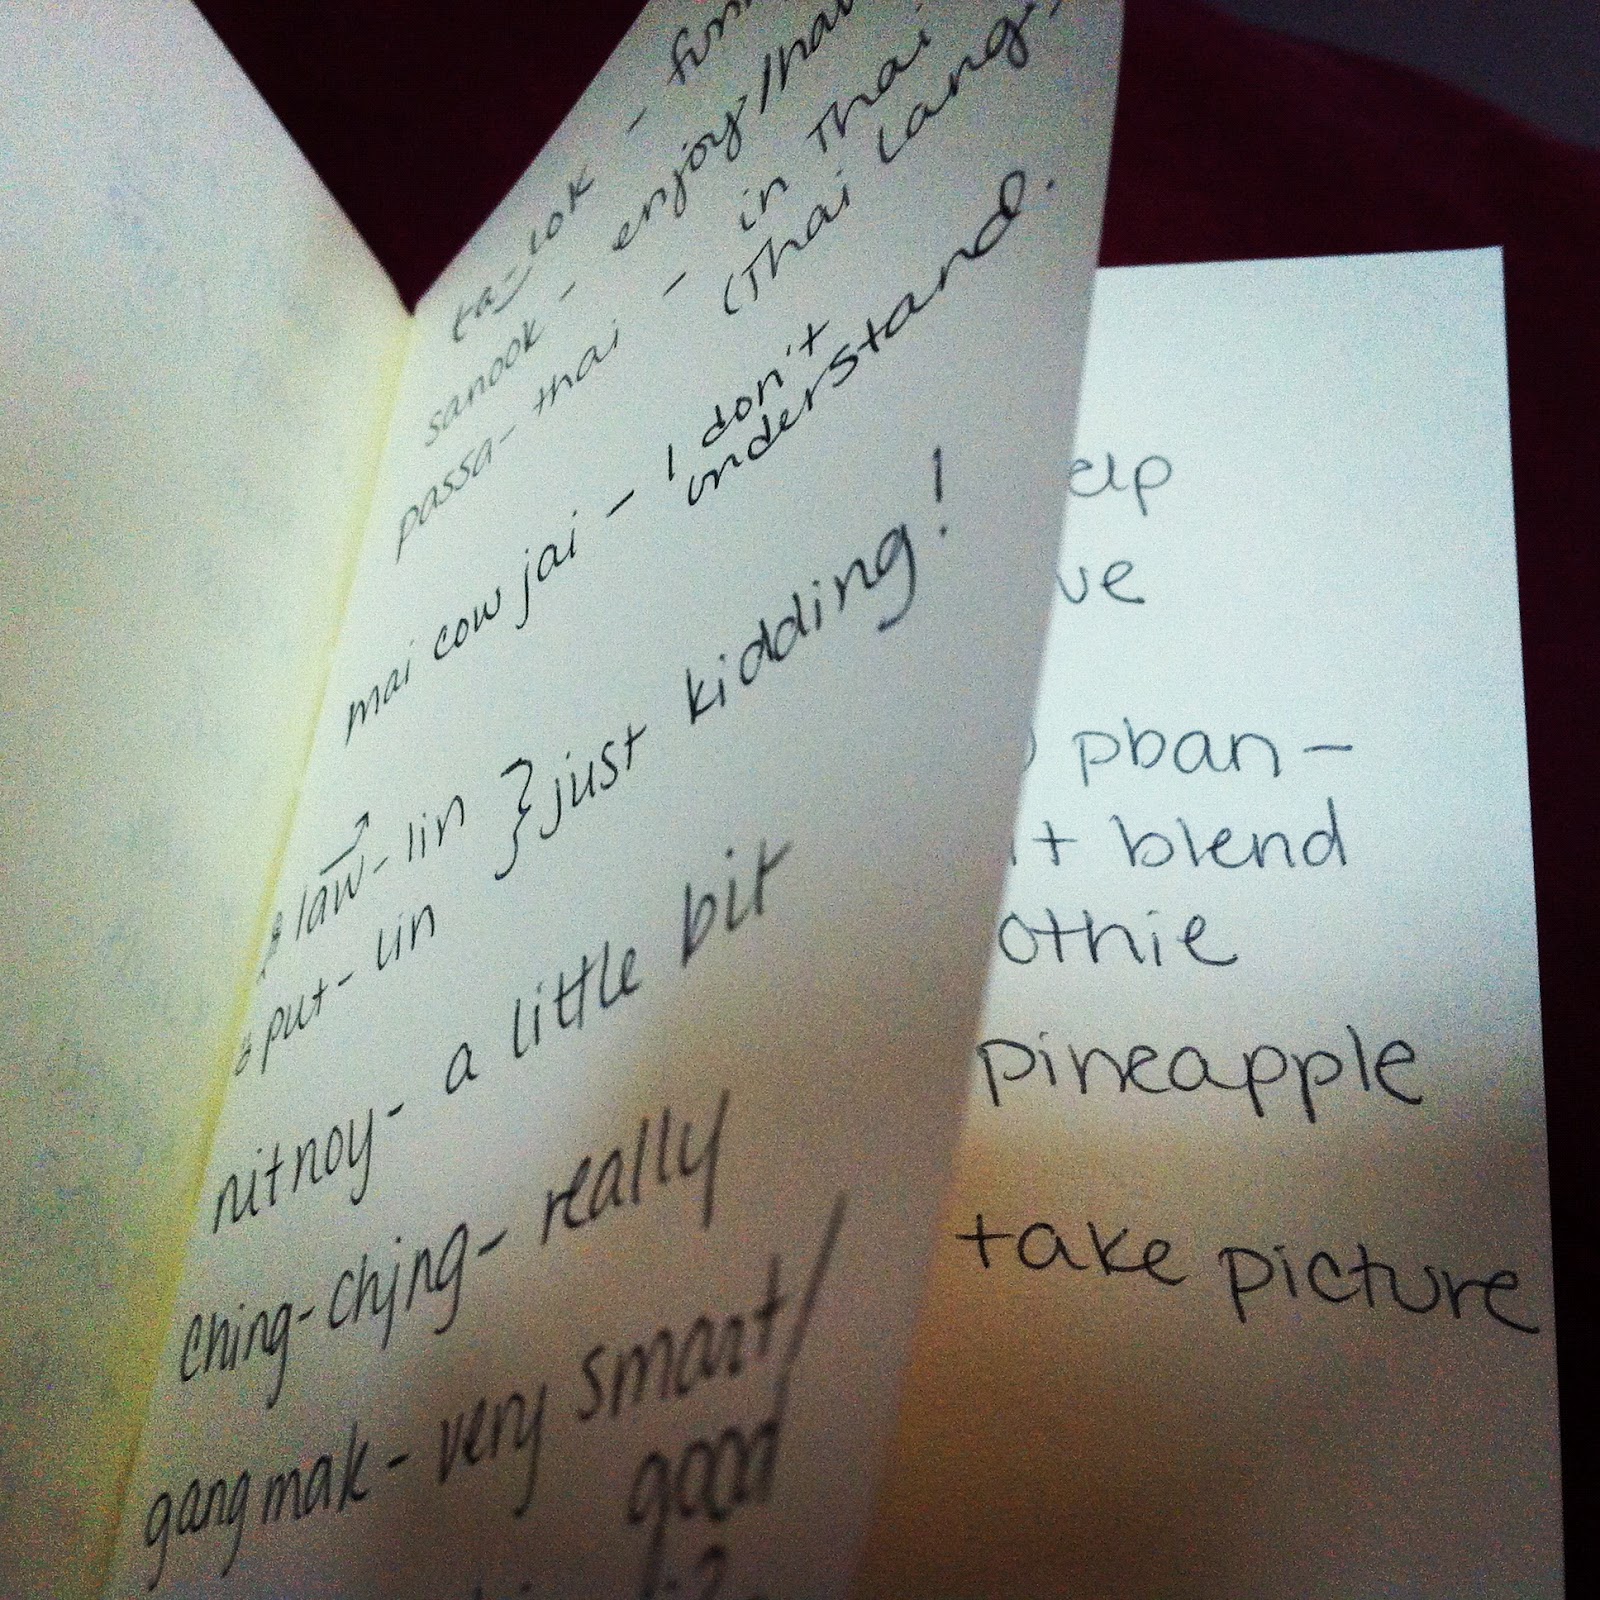 ta-lok - fun
sanook - enjoy/hav
passa-thai - in Thai
(Thai Lang.
mai cow jai - I don't
understand.
law-lin } just kidding!
put-lin
nitnoy - a little bit
Ching-Ching - really
gang mak - very smart/
good
elp
ve
pban -
+ blend
othie
pineapple
take picture